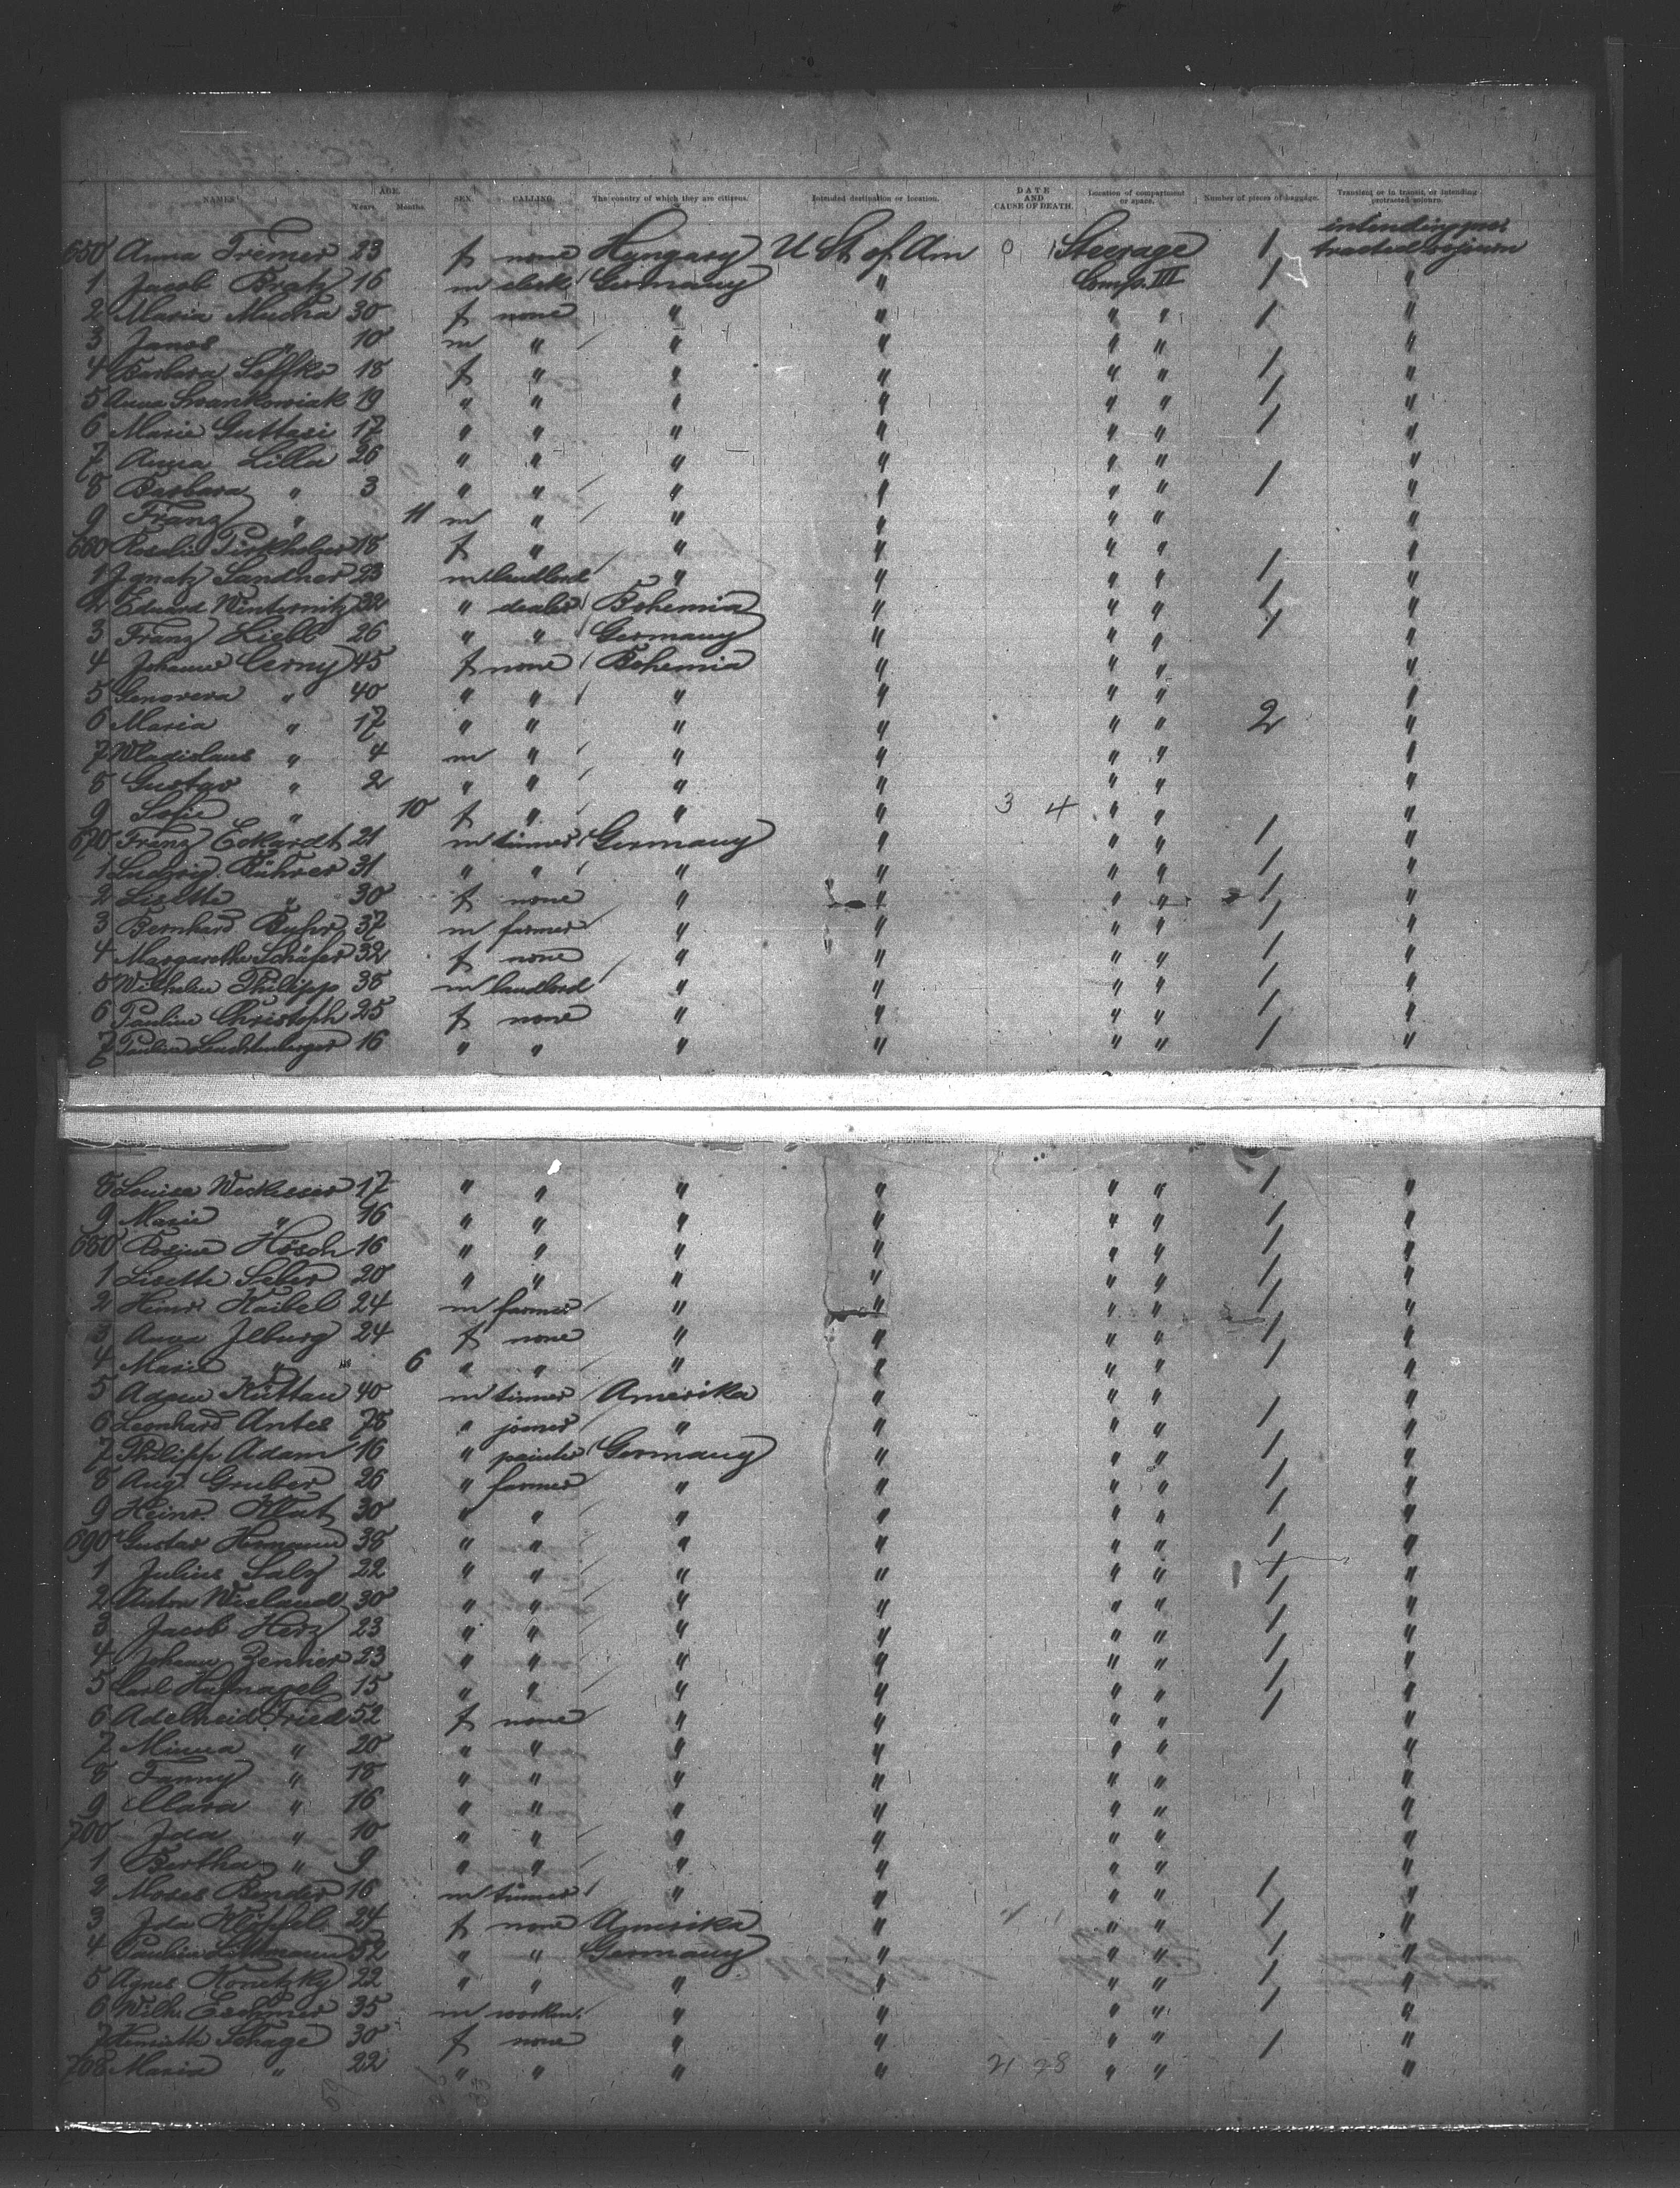 NAMES. AGE. Years. Months. SEX. CALLING. The country of which they are citizens. Intended destination or location. DATE AND CAUSE OF DEATH. Location of compartment or space. Number of pieces of baggage. Transient or in transit, or intending protracted sojourn.
650 Anna Fremer 23 f none Hungary U St. of Am 0 1 Steerage 1 intending protracted sojourn
1 Jacob Bratz 16 m clerk Germany " Comp. III 1 "
2 Maria Mucha 30 f none " " " " 1 "
3 Janos " 10 m " " " " " "
4 Barbara Seffko 18 f " " " " " 1 "
5 Anna Swankowiak 19 " " " " " " 1 "
6 Marie Guttasi 17 " " " " " " 1 "
7 Anna Lilla 26 " " " " " " "
8 Barbara " 3 " " " " " " 1 "
9 Franz " 11 m " " " " " "
660 Rosalie Pirkholzer 18 f " " " " " "
1 Ignatz Sandner 23 m landlord " " " " 1 "
2 Eduard Winternitz 32 " dealer Bohemia " " " 1 "
3 Franz Liebl 26 " " Germany " " " 1 "
4 Johanna Cerny 45 f none Bohemia " " " "
5 Genoveva " 40 " " " " " " "
6 Maria " 17 " " " " " " 2 "
7 Wladislaus " 4 m " " " " " "
8 Gustav " 2 " " " " " " "
9 Sofie " 10 f " " " 3 4 " " "
670 Franz Eckardt 21 m tinner Germany " " " 1 "
1 Ludwig Bührer 31 " " " " " " 1 "
2 Lisette " 30 f none " " " " 1 "
3 Bernhard Buhr 37 m farmer " " " " 1 "
4 Margarethe Schäfer 32 f none " " " " 1 "
5 Wilhelm Philipp 38 m landlord " " " " 1 "
6 Pauline Christoph 25 f none " " " " 1 "
7 Pauline Leuchtenberger 16 " " " " " " 1 "
8 Louise Weckesser 17 " " " " " " 1 "
9 Marie " 16 " " " " " " 1 "
680 Rosine Hösch 16 " " " " " " 1 "
1 Lisette Seber 20 " " " " " " 1 "
2 Heinr. Kaibel 24 m farmer " " " " 1 "
3 Anna Ilburg 24 f none " " " " 1 "
4 Marie " 6 " " " " " " 1 "
5 Adam Küttau 40 m tinner Amerika " " " "
6 Leonhard Antes 78 " joiner " " " " 1 "
7 Philipp Adam 16 " painter Germany " " " 1 "
8 Aug. Gruber 26 " farmer " " " " 1 "
9 Heinr. Klat 30 " " " " " " 1 "
690 Gustav Hermann 38 " " " " " " 1 "
1 Julius Saly 22 " " " " " " 1 "
2 Anton Wieland 30 " " " " " " 1 "
3 Jacob Herz 23 " " " " " " 1 "
4 Johann Zentner 23 " " " " " " 1 "
5 Carl Hufnagel 15 " " " " " " 1 "
6 Adelheid Fried 52 f none " " " " 1 "
7 Minna " 20 " " " " " " "
8 Fanny " 18 " " " " " " "
9 Clara " 16 " " " " " " "
700 Ida " 10 " " " " " " "
1 Bertha " 9 " " " " " " "
2 Moses Bender 16 m tinner " " " " 1 "
3 Ida Klöpfel 24 f none Amerika " " " 1 "
4 Pauline Littmann 52 " " Germany " " " 1 "
5 Agnes Konetzky 22 " " " " " " 1 "
6 Wilh. Eschmer 35 m workm. " " " " 1 "
7 Henriette Schage 30 f none " " " " 1 "
708 Maria " 22 " " " " 21 28 " " "